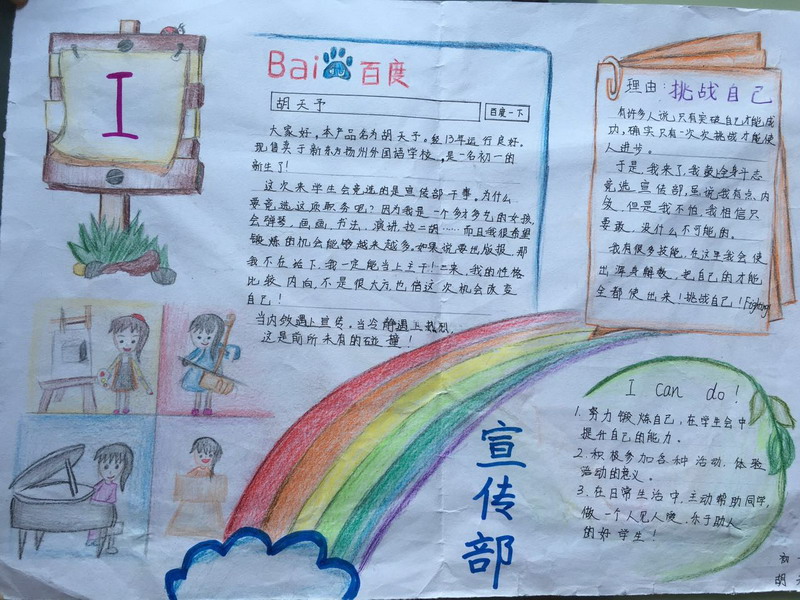 I
Bai百度
胡天予
百度一下
大家好,本产品名为胡天予。经13年运行良好。
现售卖于新东方扬州外国语学校,是一名初一的
新生了!
这次来学生会竞选的是宣传部干事。为什么
要竞选这项职务呢?因为我是一个多才多艺的女孩,
会弹琴,画画,书法,演讲,拉二胡……而且我很希望
锻炼的机会能够越来越多。如果说要出版报,那
我不在话下,我一定能当上主干!二来,我的性格
比较内向,不是很大方也借这次机会改变
自己!
当内敛遇上宣传,当冷静遇上
这是前所未有的碰撞!
理由:挑战自己
有许多人说,只有突破自己才能成
功,确实,只有一次次挑战才能使
人进步。
于是,我来了,我
竞选宣传部,虽说我有点内
敛,但是我不怕,我相信只
要敢,没什么不可能的。
我有很多技能,在这里我会使
出浑身解数,把自己的才能
全部使出来!挑战自己!Fighting
I can do!
1. 努力锻炼自己,在学生会中
提升自己的能力。
2. 积极参加各种活动,体验
活动的意义。
3. 在日常生活中,主动帮助同学,
做一个人见人爱,乐于助人
的好学生!
宣传部
初一
胡